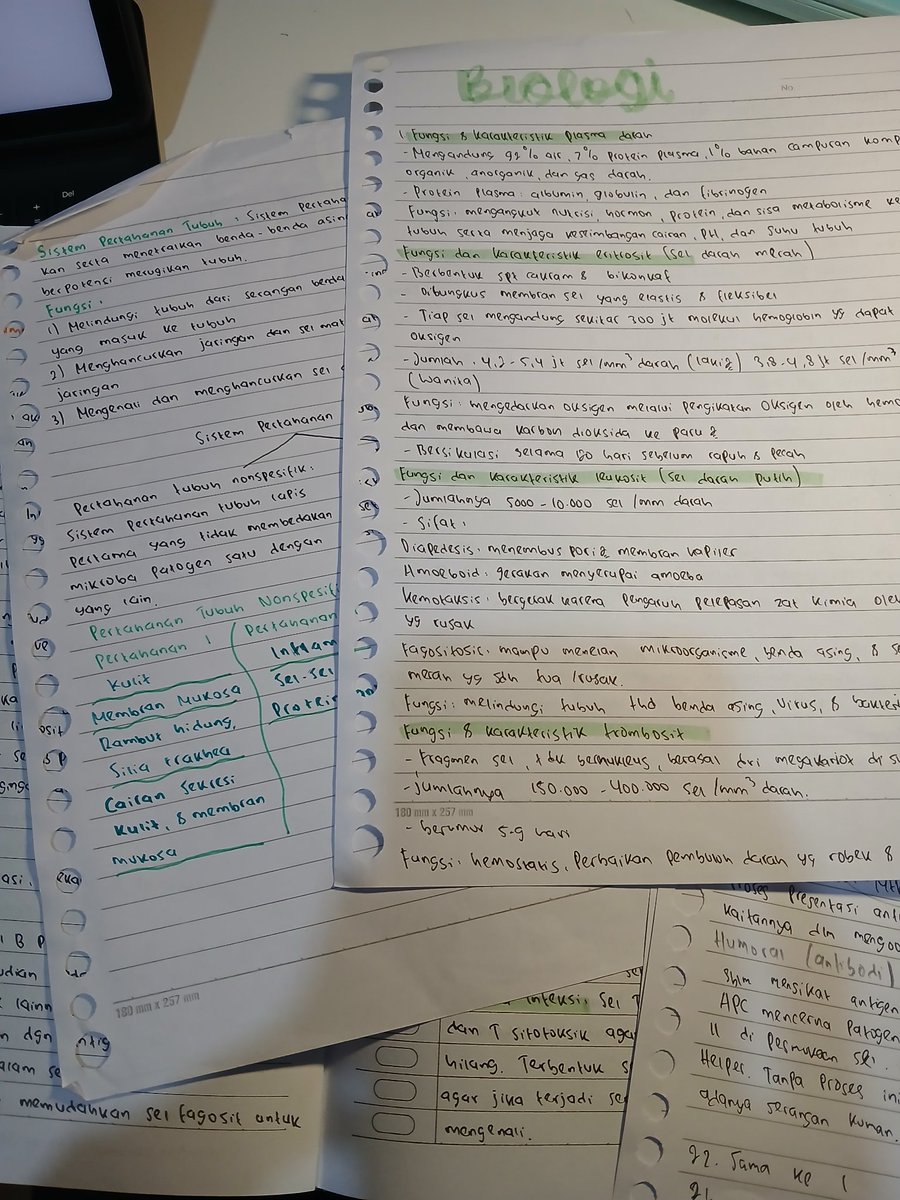 Biologi
No
1. Fungsi & Karakteristik plasma darah
- Mengandung 92% air, 7% protein plasma, 1% bahan campuran komp
organik, anorganik, dan gas darah.
- Protein plasma: albumin, globulin, dan fibrinogen
Fungsi: mengangkut nutrisi, hormon, protein, dan sisa metabolisme ke
tubuh serta menjaga keseimbangan cairan, PH, dan suhu tubuh
Fungsi dan karakteristik eritrosit (sel darah merah)
- Berbentuk spt cakram & bikonkaf
- Dibungkus membran sel yang elastis & fleksibel
- Tiap sel mengandung sekitar 300 jt molekul hemoglobin yg dapat
oksigen
- Jumlah: 4,2-5,4 jt sel/mm³ darah (laki2) 3,8-4,8 jt sel/mm³
(wanita)
Fungsi: mengedarkan oksigen melalui pengikatan oksigen oleh hemo
dan membawa karbon dioksida ke paru2
- Bersikulasi selama 120 hari sebelum rapuh & pecah
Fungsi dan karakteristik leukosit (sel darah putih)
- Jumlahnya 5000-10.000 sel/mm darah
- Sifat:
Diapedesis: menembus pori2 membran kapiler
Amoeboid: gerakan menyerupai amoeba
Kemotaksis: bergerak karena pengaruh pelepasan zat kimia oleh
yg rusak
Fagositosis: mampu menelan mikroorganisme, benda asing, & se
merah yg sdh tua/rusak.
Fungsi: melindungi tubuh thd benda asing, virus, & bakteri
Fungsi & karakteristik trombosit
- Fragmen sel, tdk bernukleus, berasal dri megakariot di su
- jumlahnya 150.000-400.000 sel/mm³ darah.
180 mm x 257 mm
- berumur 5-9 hari
Fungsi: hemostatis, Perbaikan pembuluh darah yg robek &
Sistem Pertahanan Tubuh: Sistem pertaha
kan serta menetralkan benda-benda asin
berpotensi merugikan tubuh.
Fungsi:
1) Melindungi tubuh dari serangan benda
yang masuk ke tubuh
2) Menghancurkan jaringan dan sel mat
jaringan
3) Mengenali dan menghancurkan sel
Sistem Pertahanan
Pertahanan tubuh nonspesifik:
Sistem pertahanan tubuh lapis
pertama yang tidak membedakan
mikroba patogen satu dengan
yang lain.
Pertahanan Tubuh Nonspesifi
Pertahanan 1
Kulit
Membran Mukosa
Rambut hidung,
Silia trakhea
Cairan sekresi
kulit, & membran
mukosa
Pertahanan
Inflam
Sel-sel
Protein
180 mm x 257 mm
memudahkan sel fagosit untuk
infeksi, Sel T
dan T sitotoksik agar
hilang. Terbentuk s
agar jika terjadi se
mengenali.
Proses presentasi anti
kaitannya dlm mengo
Humoral (antibodi)
Sblm mensikat antigen
APC mencerna patogen
II di permukaan sel.
Helper. Tanpa proses ini
adanya serangan kuman.
22. Sama ke 1
21.
Del